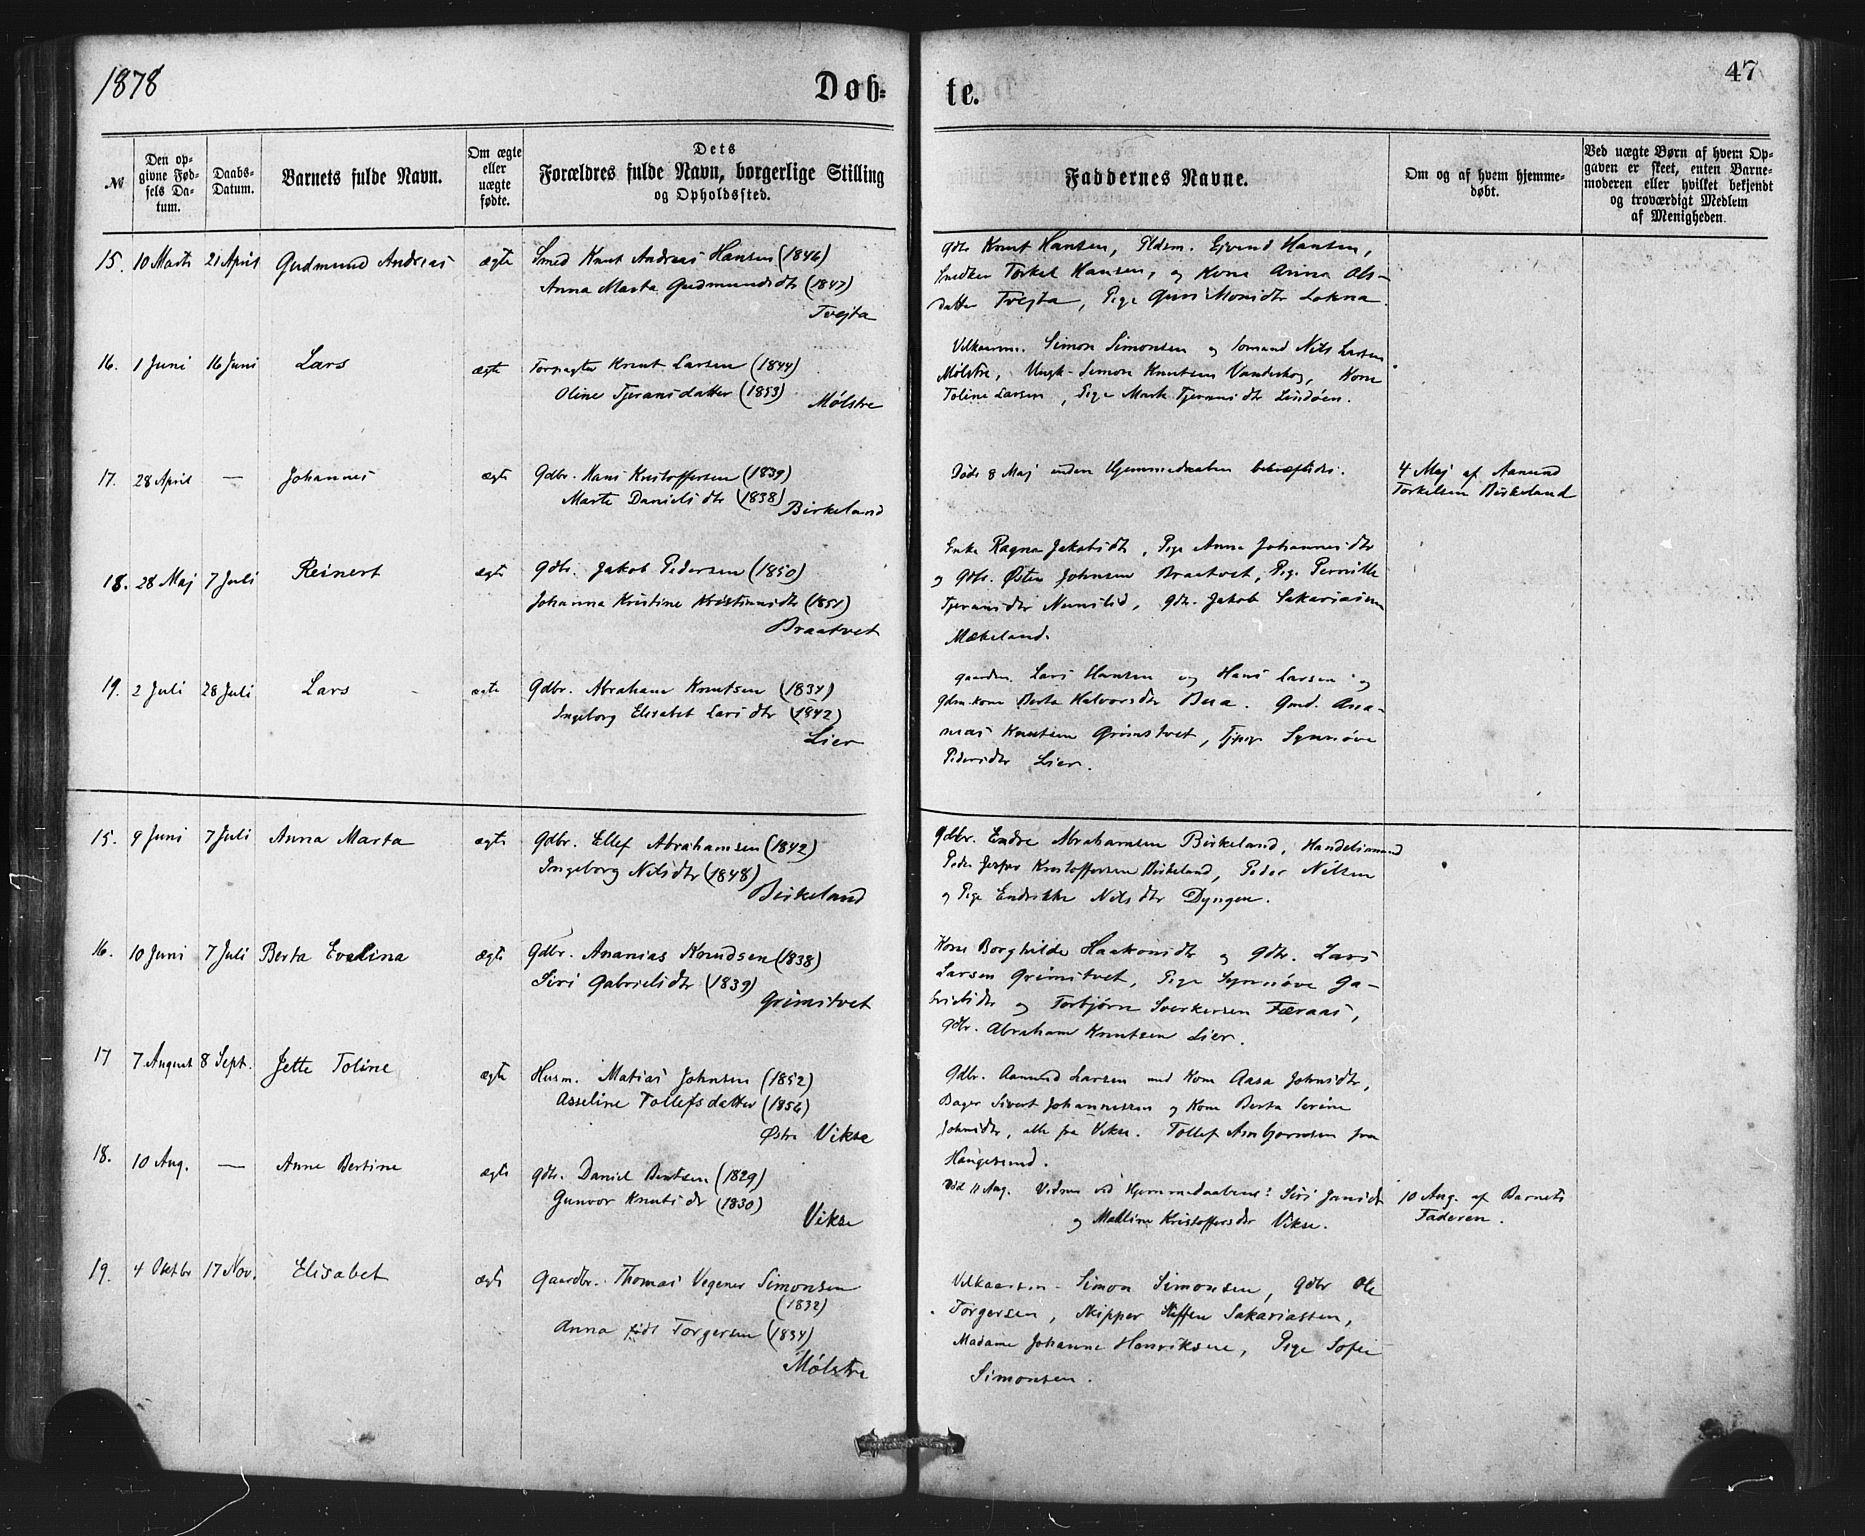 1878
Døb-
te.
47
№
Den op-
givne Fød-
sels Da-
tum.
Daabs-
Datum.
Barnets fulde Navn.
Om ægte
eller
uægte
fødte.
Dets
Forældres fulde Navn, borgerlige Stilling
og Opholdssted.
Faddernes Navne.
Om og af hvem hjemme-
døbt.
Ved uægte Børn af hvem Op-
gaven er skeet, enten Barne-
moderen eller hvilket bekjendt
og troværdigt Medlem
af Menigheden.
15. 10 Marts 21 April Gudmund Andreas ægte Smed Knut Andreas Hansen (1846)
Anna Marta Gudmundsdtr (1847)
Tvejta
Gdbr Knut Hansen, Pldsm. Ejvind Hansen,
Snedker Torkel Hansen, og Kone Anna Ols-
datter Tvejta, Pige Guri Monsdtr Lokna.
16. 1 Juni 16 Juni Lars ægte Forpagter Knut Larsen (1844)
Oline Tjeransdatter (1853)
Mølstre
Vilkaarsm. Simon Simonsen og Sømand Nils Larsen
Mølstre, Ungk. Simon Knutsen Vanderkog, Kone
Toline Larsen, Pige Marta Tjeransdtr Lindøen.
17. 28 April — Johannes ægte Gdbr. Hans Kristoffersen (1839)
Marte Danielsdtr (1838)
Birkeland
Døde 8 Maj inden Hjemmedaaben bekræftedes.
4 Maj af Aamund
Torkelsen Birkeland
18. 28 Maj 7 Juli Reinert ægte Gdbr. Jakob Pedersen (1850)
Johanna Kristine Kristiansdtr (1851)
Braatvet
Enke Ragna Jakobsdtr, Pige Anna Johannesdtr
og Gdbr. Østen Johnsen Braatvet, Pige Pernille
Tjeransdtr Nemslid, Gdbr. Jakob Sakariasen
Mækeland.
19. 2 Juli 28 Juli Lars ægte Gdbr. Abraham Knutsen (1834)
Ingeborg Elisabet Larsdtr (1842)
Lier
Lars Hansen og Hans Larsen og
Gdm.kone Berta Halvorsdtr Bua. Gmd. Ana-
nias Knutsen Grimstvet, Tjpge Synnøve
Pedersdtr Lier.
15. 9 Juni 7 Juli Anna Marta ægte Gdbr. Ellef Abrahamsen (1842)
Ingeborg Nilsdtr (1848)
Birkeland
Gdbr. Endre Abrahamsen Birkeland, Handelsmand
Peder Jesper Kristoffersen Birkeland, Peder Nilsen
og Pige Endrikke Nilsdtr Dyngen.
16. 10 Juni 7 Juli Berta Evelina ægte Gdbr. Ananias Knudsen (1838)
Siri Gabrielsdtr (1839)
Grimstvet
Kone Borghilde Haakonsdtr og Gdbr. Lars
Larsen Grimstvet, Pige Synnøve Ga-
brielsdtr og Torbjørn Sverkersen Færaas,
Gdbr. Abraham Knutsen Lier.
17 7 August 8 Sept. Jette Toline ægte Husm. Matias Johnsen (1852)
Asseline Tollefsdatter (1856)
Østre Vikse
Gdbr. Aamund Larsen med Kone Aasa Johnsdtr,
Bager Sivert Johannessen og Kone Berta Serine
Johnsdtr, alle fra Vikse. Tollef Asbjørnsen fra
Haugesund.
18. 10 Aug. — Anne Bertine ægte Gdbr. Daniel Bentsen (1829)
Gunvor Knutsdtr (1830)
Vikse
Død 11 Aug. Vidner ved Hjemmedaaben: Siri Jansdtr
og Malline Kristoffersdtr Vikse.
10 Aug. af Barnets
Faderen.
19. 4 Oktbr 17 Nov. Elisabet ægte Gaardbr. Thomas Vegener Simonsen
(1832)
Anna født Torgersen (1834)
Mølstre
Vilkaarsm. Simon Simonsen, Gdbr Ole
Torgersen, Skipper Steffen Sakariassen,
Madame Johanne Henriksen, Pige Sofie
Simonsen.